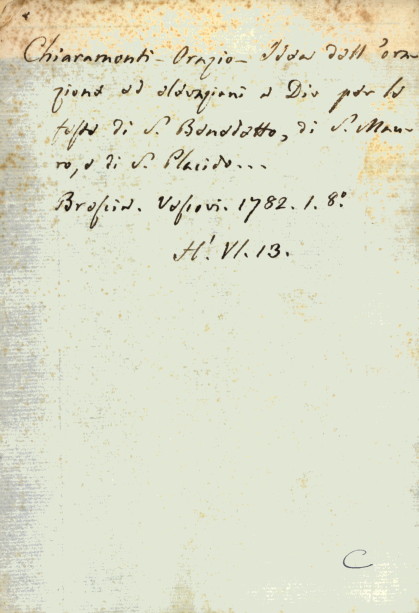 Chiaramonti - Orazio - Idea dell'ora-
zione ed elevazioni a Dio per le
feste di S. Benedetto, di S. Mau-
ro, e di S. Placido...
Brescia. Vescovi. 1782. 1. 8.º
H¹. VI. 13.
C